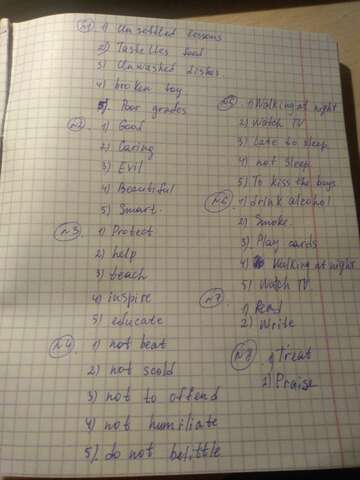 №1 1) Unsettled lessons
2) Tastelles food
3) Unwashed dishes
4) broken toy
5) Poor grades
№2 1) Good
2) Caring
3) Evil
4) Beautiful
5) Smart.
№3 1) Protect
2) help
3) teach
4) inspire
5) educate
№4 1) not beat
2) not scold
3) not to offend
4) not humiliate
5) do not belittle
№5 1) Walking at night
2) Watch TV
3) Late to sleep
4) not sleep
5) To kiss the boys
№6 1) drink alcohol
2) Smoke
3) Play cards
4) Walking at night
5) Watch TV
№7
1) Read
2) Write
№8 1) Treat
2) Praise